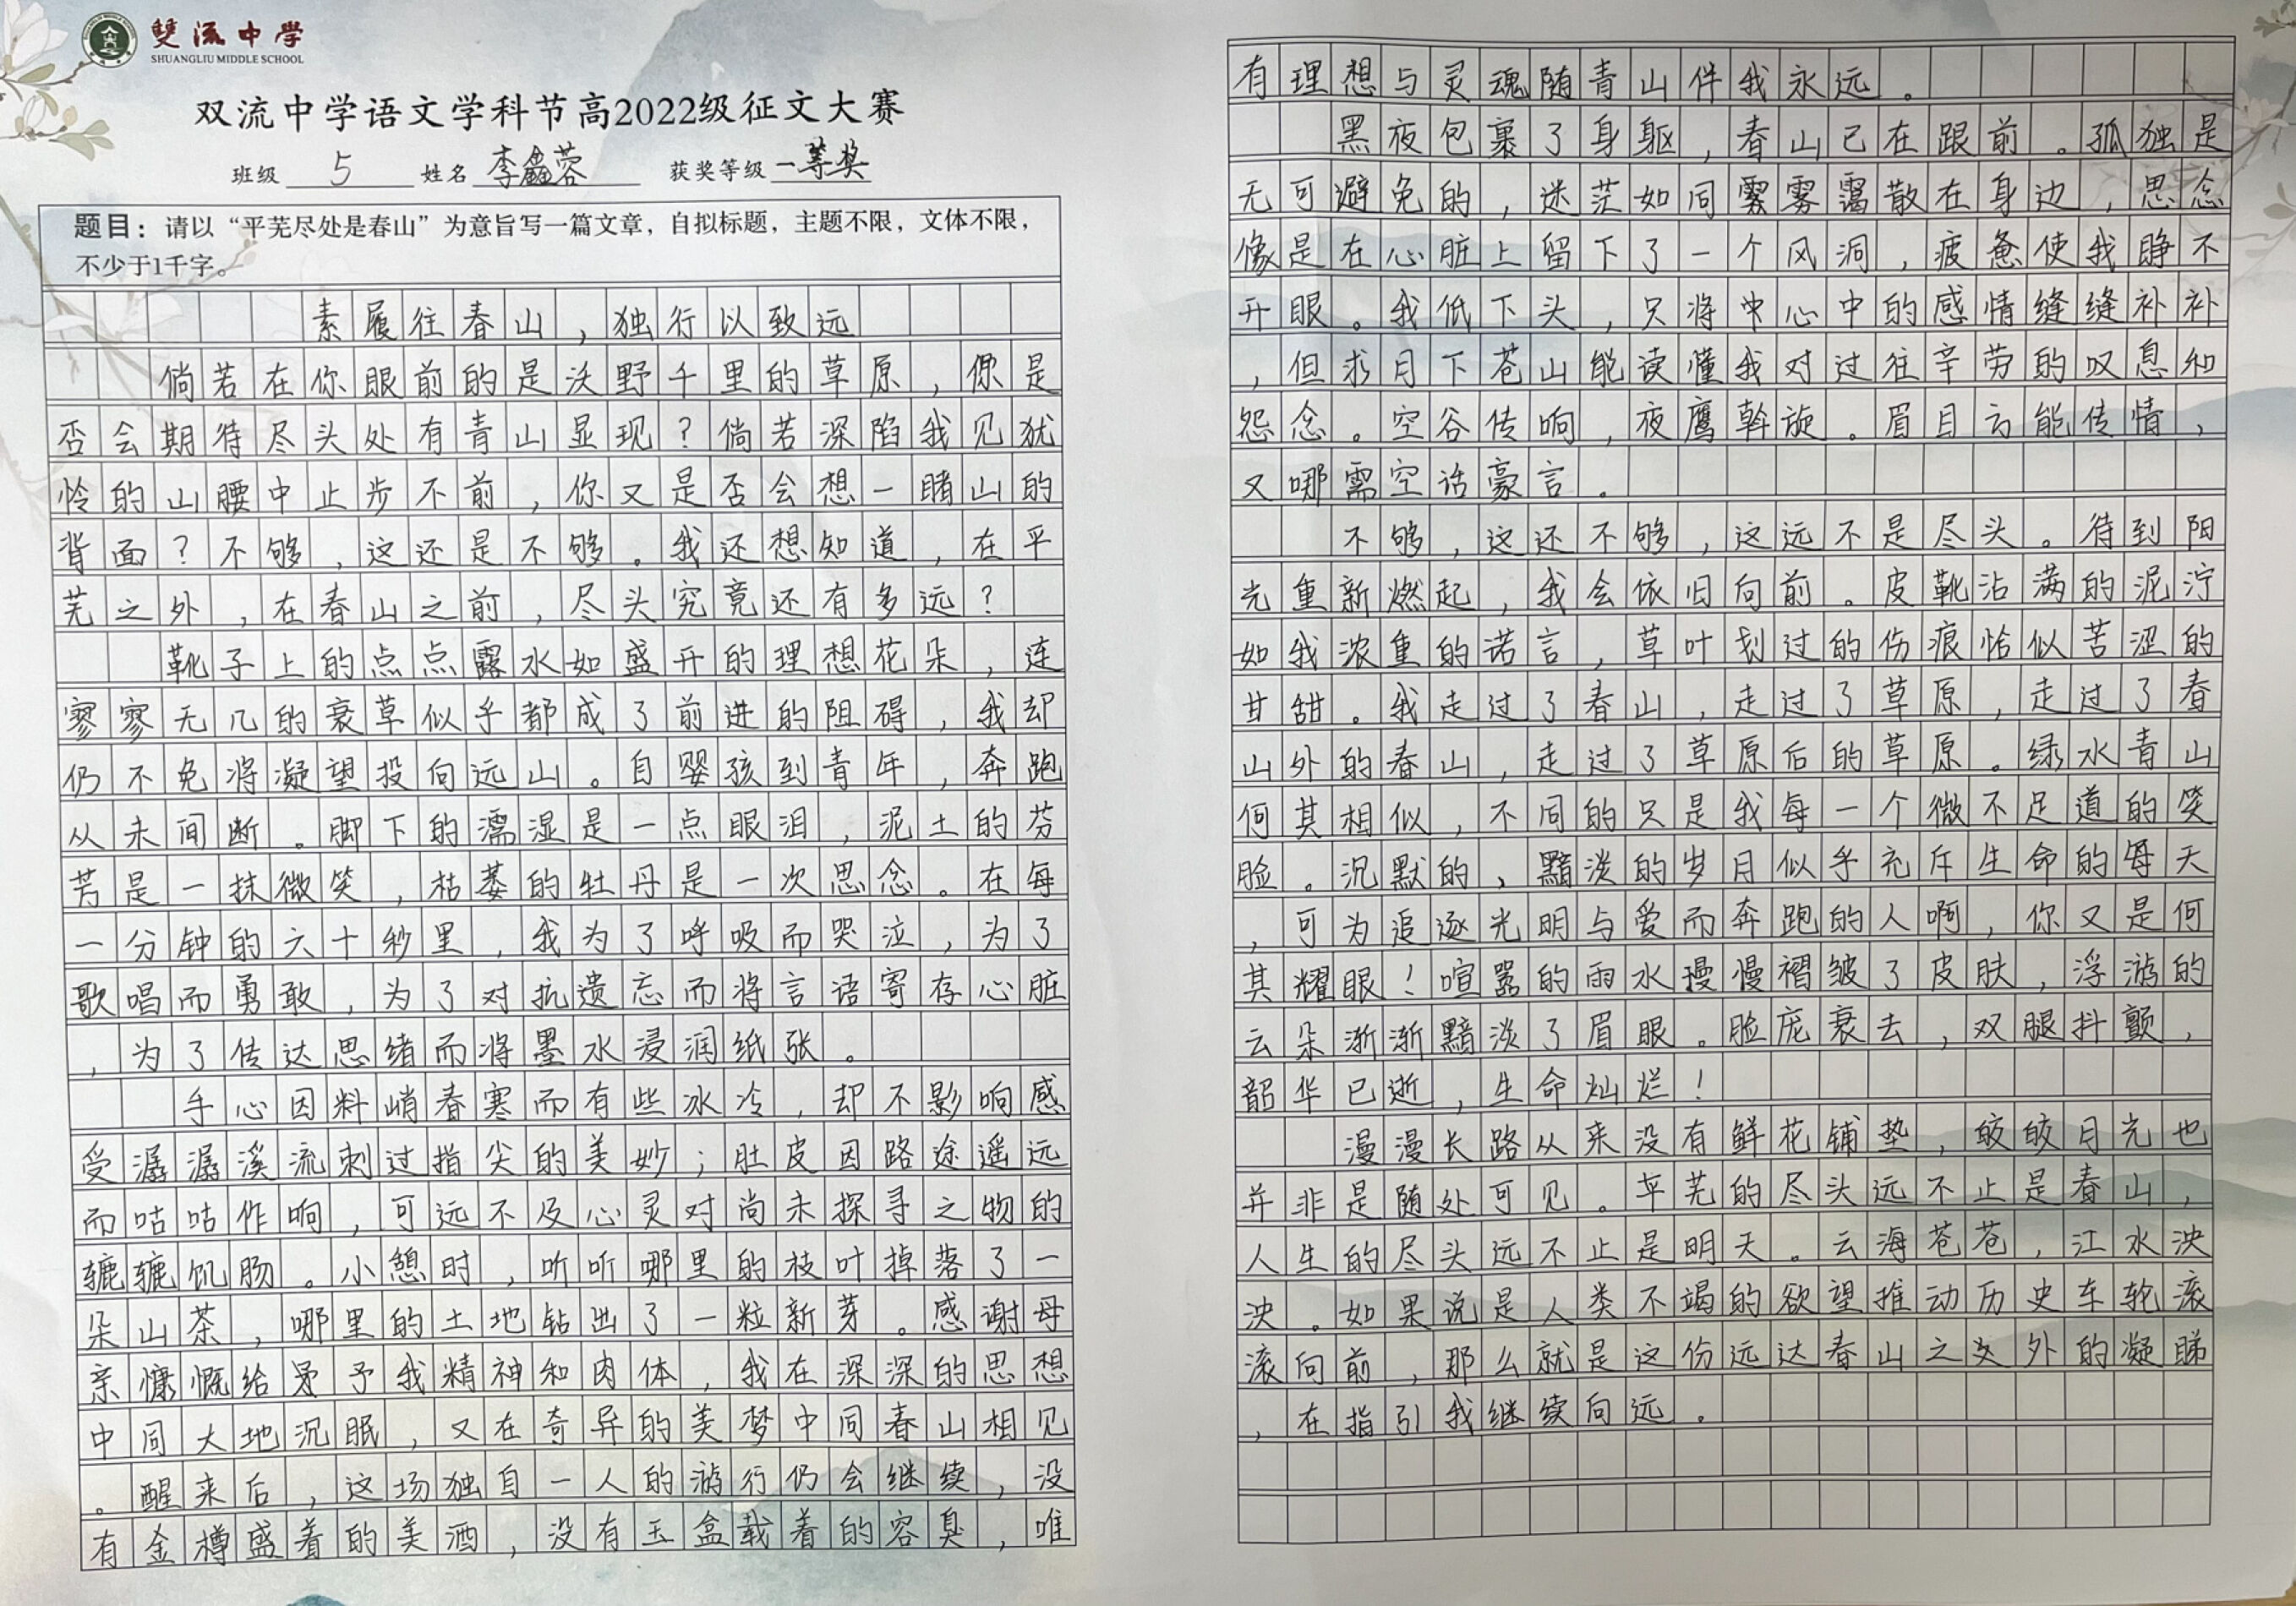 雙流中学
SHUANGLIU MIDDLE SCHOOL
双流中学语文学科节高2022级征文大赛
班级 5 姓名 李鑫蓉 获奖等级 一等奖
题目：请以“平芜尽处是春山”为意旨写一篇文章，自拟标题，主题不限，文体不限，
不少于1千字。
素履往春山，独行以致远
倘若在你眼前的是沃野千里的草原，你是
否会期待尽头处有青山显现？倘若深陷我见犹
怜的山腰中止步不前，你又是否会想一睹山的
背面？不够，这还是不够。我还想知道，在平
芜之外，在春山之前，尽头究竟还有多远？
靴子上的点点露水如盛开的理想花朵，连
寥寥无几的衰草似乎都成了前进的阻碍，我却
仍不免将凝望投向远山。自婴孩到青年，奔跑
从未间断。脚下的濡湿是一点眼泪，泥土的芬
芳是一抹微笑，枯萎的牡丹是一次思念。在每
一分钟的六十秒里，我为了呼吸而哭泣，为了
歌唱而勇敢，为了对抗遗忘而将言语寄存心脏
，为了传达思绪而将墨水浸润纸张。
手心因料峭春寒而有些冰冷，却不影响感
受潺潺溪流刺过指尖的美妙；肚皮因路途遥远
而咕咕作响，可远不及心灵对尚未探寻之物的
辘辘饥肠。小憩时，听听哪里的枝叶掉落了一
朵山茶，哪里的土地钻出了一粒新芽。感谢母
亲慷慨给予我精神和肉体，我在深深的思想
中同大地沉眠，又在奇异的美梦中同春山相见
。醒来后，这场独自一人的游行仍会继续，没
有金樽盛着的美酒，没有玉盒载着的容臭，唯
有理想与灵魂随青山伴我永远。
黑夜包裹了身躯，春山已在跟前。孤独是
无可避免的，迷茫如同雾霭散在身边，思念
像是在心脏上留下了一个风洞，疲惫使我睁不
开眼。我低下头，只将心中的感情缝缝补补
，但求月下苍山能读懂我对过往辛劳的叹息和
怨念。空谷传响，夜鹰斡旋。眉目亦能传情，
又哪需空话豪言。
不够，这还不够，这远不是尽头。待到阳
光重新燃起，我会依旧向前。皮靴沾满的泥泞
如我浓重的诺言，草叶划过的伤痕恰似苦涩的
甘甜。我走过了春山，走过了草原，走过了春
山外的春山，走过了草原后的草原。绿水青山
何其相似，不同的只是我每一个微不足道的笑
脸。沉默的，黯淡的岁月似乎充斥生命的每天
，可为追逐光明与爱而奔跑的人啊，你又是何
其耀眼！喧嚣的雨水慢慢褶皱了皮肤，浮游的
云朵渐渐黯淡了眉眼。脸庞衰去，双腿抖颤，
韶华已逝，生命灿烂！
漫漫长路从来没有鲜花铺垫，皎皎月光也
并非是随处可见。平芜的尽头远不止是春山，
人生的尽头远不止是明天。云海苍苍，江水泱
泱。如果说是人类不竭的欲望推动历史车轮滚
滚向前，那么就是这份远达春山之外的凝睇
，在指引我继续向远。